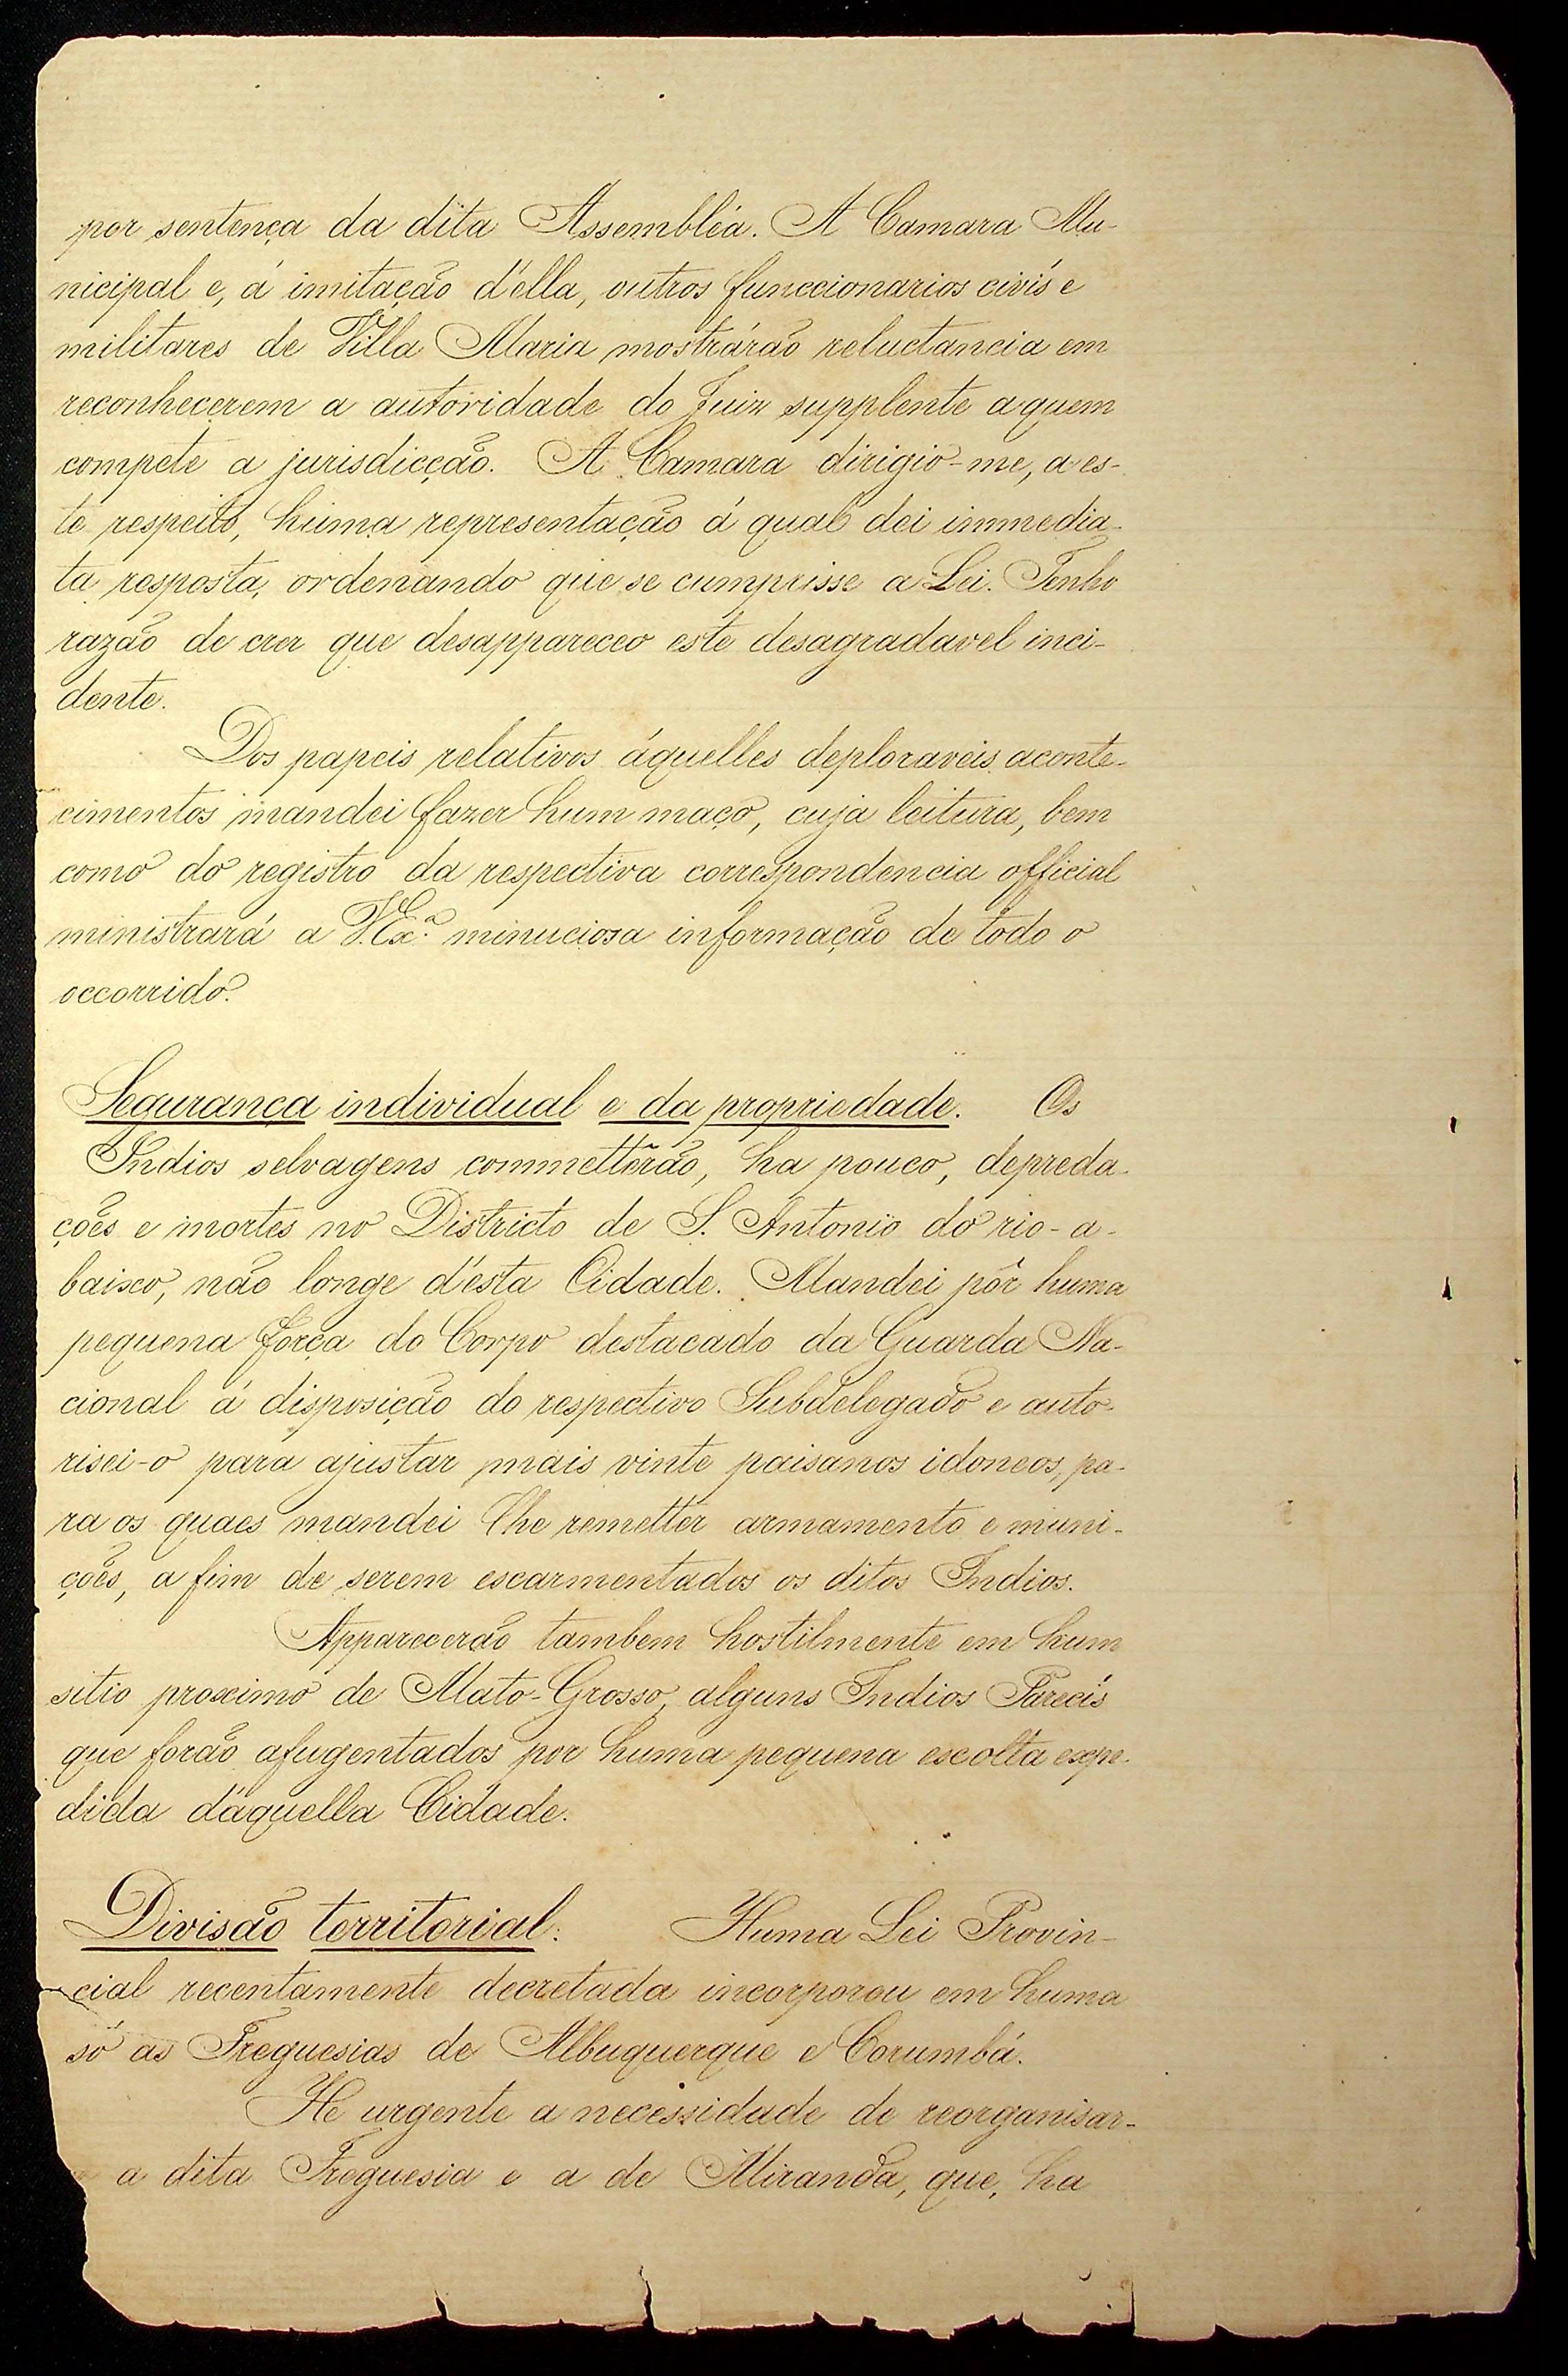 por sentença da dita Assembléa. A Camara Mu-
nicipal e, á imitação d'ella, outros funccionarios civís e
militares de Villa Maria mostrárão reluctancia em
reconhecerem a autoridade do Juiz supplente a quem
compete a jurisdicção. A Camara dirigio-me, a es-
te respeito, huma representação á qual dei immedia-
ta resposta, ordenando que se cumprisse a Lei. Tenho
razão de crer que desappareceo este desagradavel inci-
dente.
Dos papeis relativos áquelles deploraveis aconte-
cimentos mandei fazer hum maço, cuja leitura, bem
como do registro da respectiva correspondencia official
ministrará a V.Exª minuciosa informação de todo o
occorrido.
Segurança individual e da propriedade. Os
Indios selvagens commettêrão, ha pouco, depreda-
ções e mortes no Districto de S. Antonio do rio-a-
baixo, não longe d'ésta Cidade. Mandei pôr huma
pequena força do Corpo destacado da Guarda Na-
cional á disposição do respectivo Subdelegado e auto-
risei-o para ajustar mais vinte paisanos idoneos, pa-
ra os quaes mandei lhe remetter armamento e muni-
ções, a fim de serem escarmentados os ditos Indios.
Apparecerão tambem hostilmente em hum
sitio proximo de Mato-Grosso, alguns Indios Parecís
que forão afugentados por huma pequena escolta expe-
dida d'aquella Cidade.
Divisão territorial. Huma Lei Provin-
cial recentamente decretada incorporou em huma
só as Freguesias de Albuquerque e Corumbá.
He urgente a necessidade de reorganisar-
a dita Freguesia e a de Miranda, que, ha